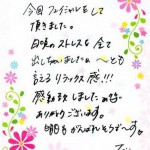 今回フェイシャルをして
頂きました。
日頃のストレスを全て
出しちゃいました
言える リラックス感!!!
感動しました
ありがとうございます。
明日もがんばれそうで〜す。